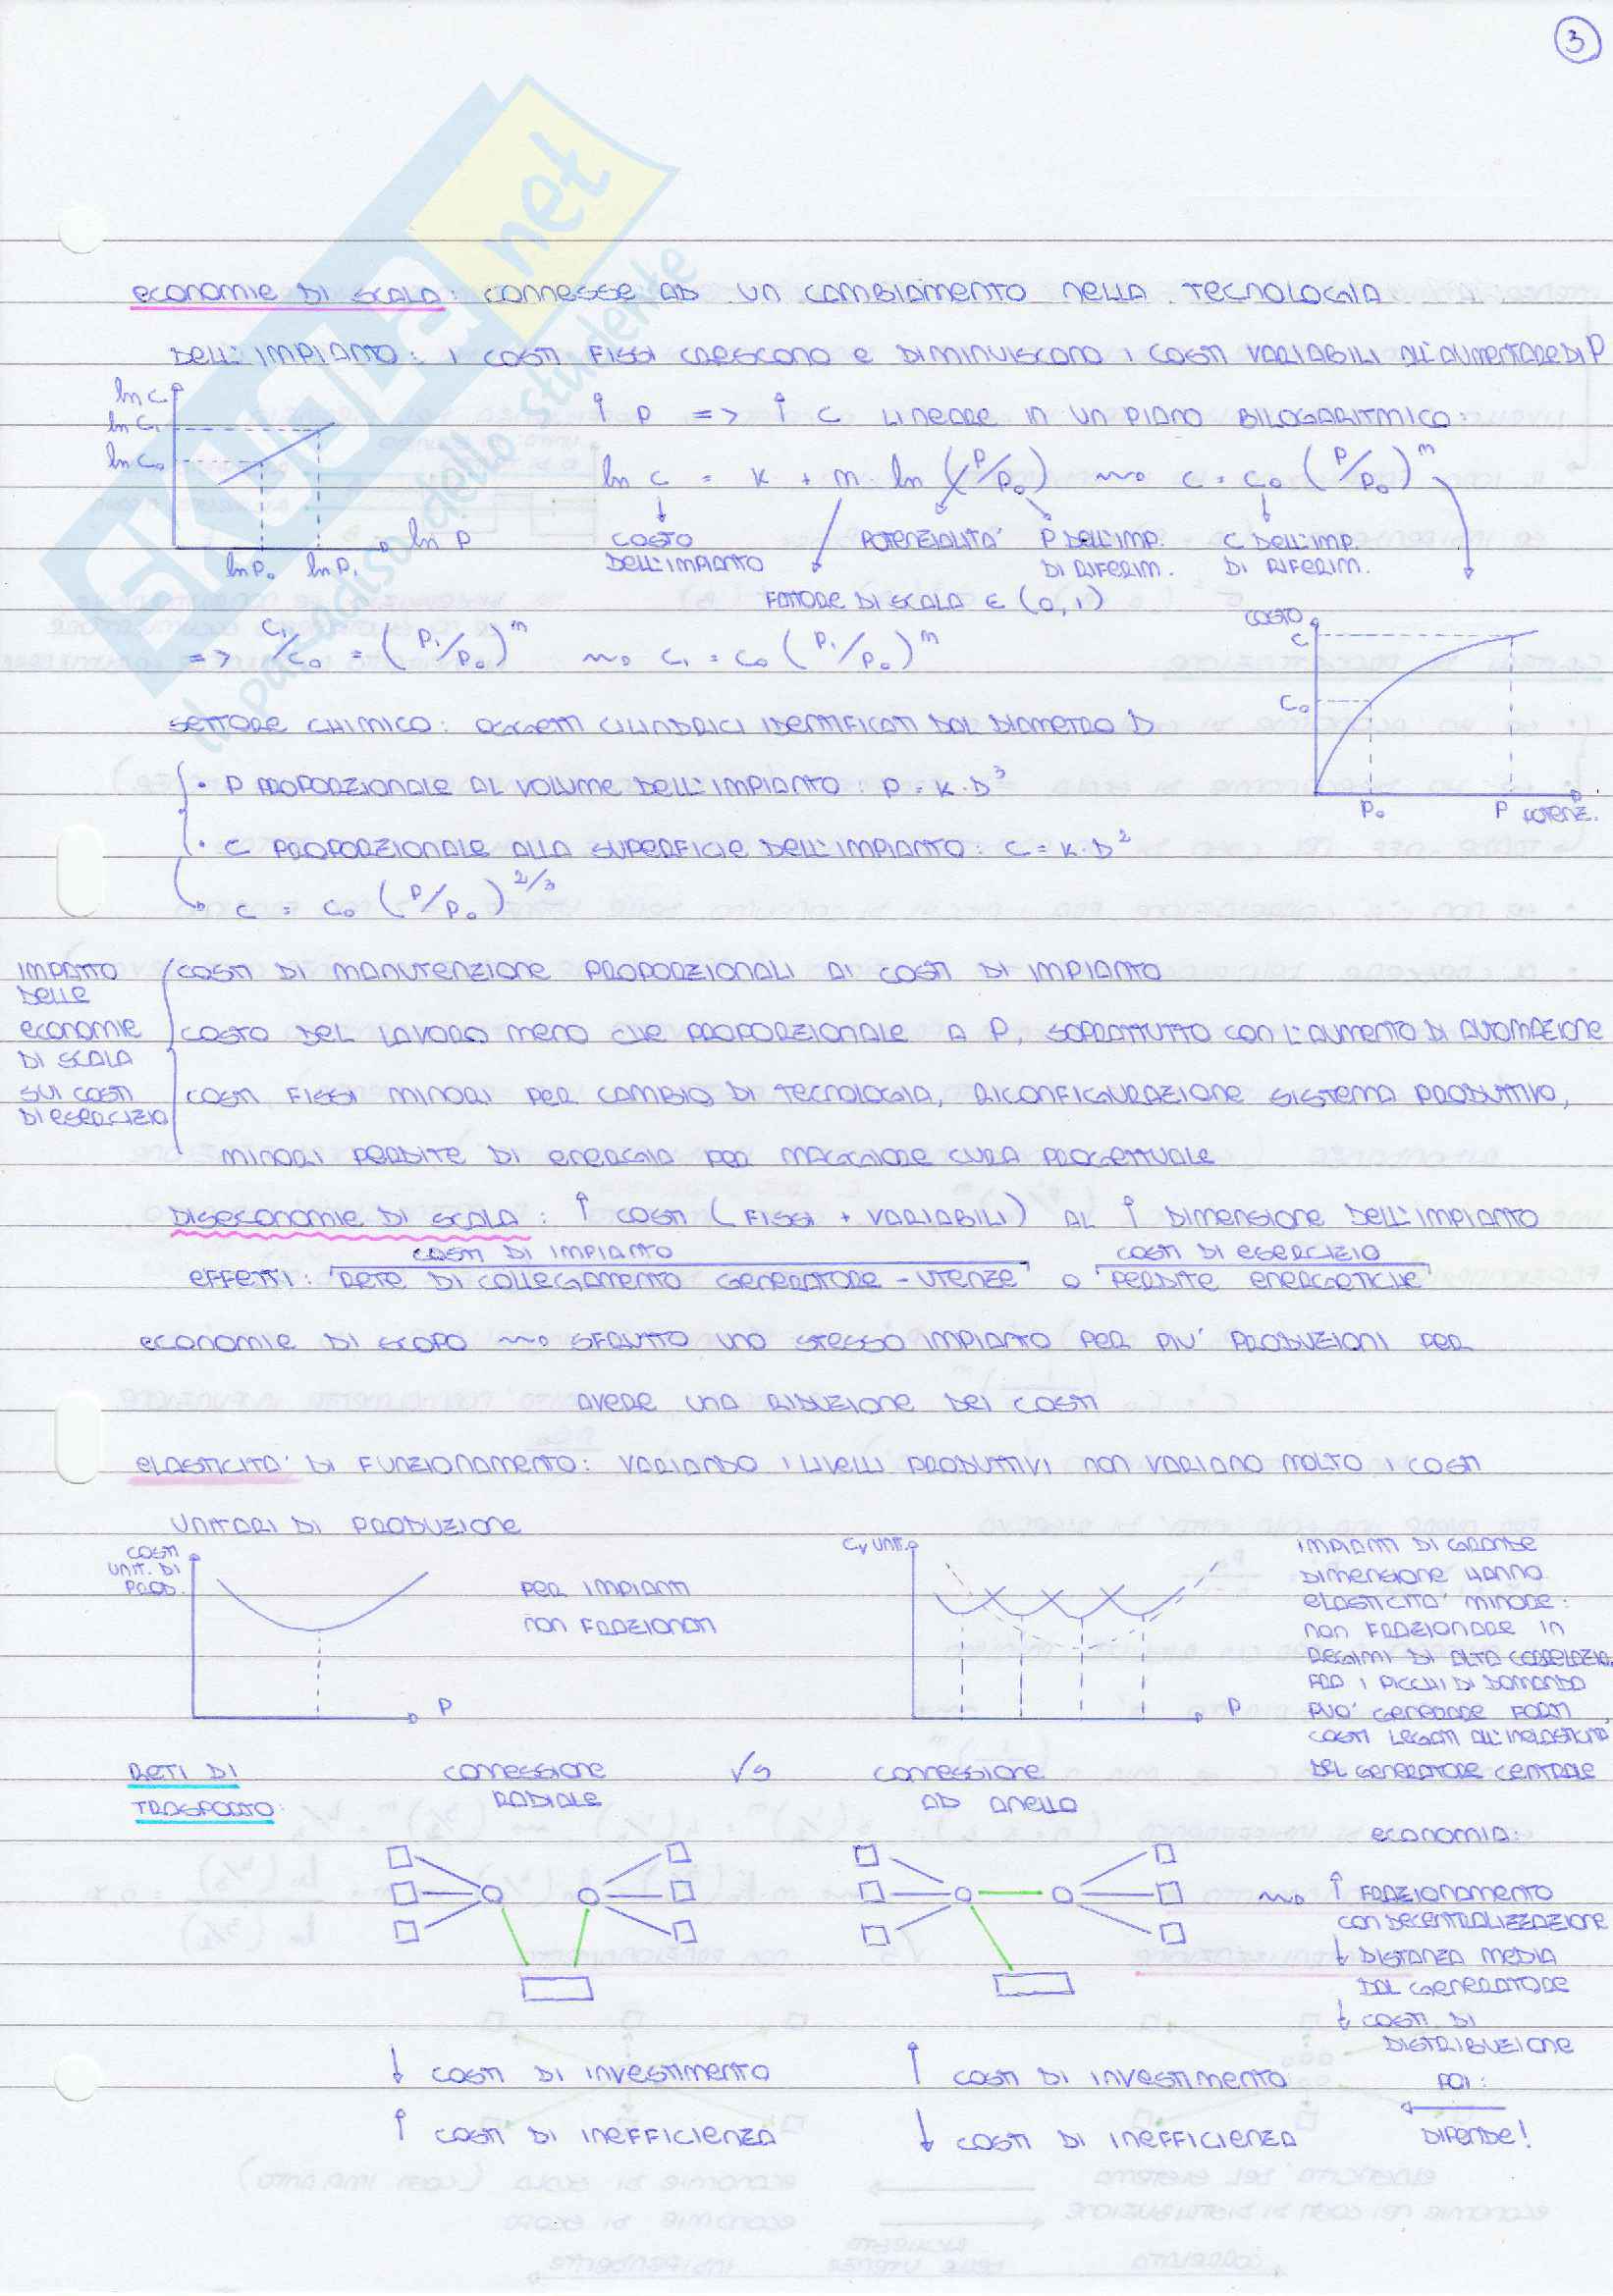 3
SKUOLA.net
il paradiso dello studente
ECONOMIE DI SCALA: CONNESSE AD UN CAMBIAMENTO NELLA TECNOLOGIA
DELL'IMPIANTO: I COSTI FISSI CRESCONO E DIMINUISCONO I COSTI VARIABILI ALL'AUMENTARE DI P
ln C
ln C₁
ln C₀
ln P
ln P₀ ln P₁
↑ P => ↑ C LINEARE IN UN PIANO BILOGARITMICO:
ln C = K + m · ln (P/P₀) ~> C = C₀ (P/P₀)^m
COSTO DELL'IMPIANTO
POTENZIALITA'
P DELL'IMP. DI RIFERIM.
C DELL'IMP. DI RIFERIM.
FATTORE DI SCALA ∈ (0,1)
=> C₁/C₀ = (P₁/P₀)^m ~> C₁ = C₀ (P₁/P₀)^m
COSTO
C
C₀
P₀ P POTENZ.
SETTORE CHIMICO: OGGETTI CILINDRICI IDENTIFICATI DAL DIAMETRO D
· P PROPORZIONALE AL VOLUME DELL'IMPIANTO: P = K · D³
· C PROPORZIONALE ALLA SUPERFICIE DELL'IMPIANTO: C = K · D²
C = C₀ (P/P₀)^2/3
IMPATTO
DELLE
ECONOMIE
DI SCALA
SUI COSTI
DI ESERCIZIO
COSTI DI MANUTENZIONE PROPORZIONALI AI COSTI DI IMPIANTO
COSTO DEL LAVORO MENO CHE PROPORZIONALE A P, SOPRATTUTTO CON L'AUMENTO DI AUTOMAZIONE
COSTI FISSI MINORI PER CAMBIO DI TECNOLOGIA, RICONFIGURAZIONE SISTEMA PRODUTTIVO,
MINORI PERDITE DI ENERGIA PER MAGGIORE CURA PROGETTUALE
DISECONOMIE DI SCALA: ↑ COSTI (FISSI + VARIABILI) AL ↑ DIMENSIONE DELL'IMPIANTO
COSTI DI IMPIANTO COSTI DI ESERCIZIO
EFFETTI: RETE DI COLLEGAMENTO GENERATORE - UTENZE O PERDITE ENERGETICHE
ECONOMIE DI SCOPO ~> SFRUTTO UNO STESSO IMPIANTO PER PIU' PRODUZIONI PER
AVERE UNA RIDUZIONE DEI COSTI
ELASTICITA' DI FUNZIONAMENTO: VARIANDO I LIVELLI PRODUTTIVI NON VARIANO MOLTO I COSTI
UNITARI DI PRODUZIONE
COSTI
UNIT. DI
PROD.
P
PER IMPIANTI
NON FRAZIONATI
Cv UNIT.
P
IMPIANTI DI GRANDE
DIMENSIONE HANNO
ELASTICITA' MINORE:
NON FRAZIONARE IN
REGIMI DI ALTA CORRELAZIO.
FRA I PICCHI DI DOMANDA
PUO' GENERARE FORTI
COSTI LEGATI ALL'INELASTICITA'
DEL GENERATORE CENTRALE
RETI DI
TRASPORTO:
CONNESSIONE
RADIALE
VS
CONNESSIONE
AD ANELLO
ECONOMIA:
~> ↑ FRAZIONAMENTO
CON DECENTRALIZZAZIONE
↓ DISTANZA MEDIA
DAL GENERATORE
↓ COSTI DI
DISTRIBUZIONE
POI:
DIPENDE!
↓ COSTI DI INVESTIMENTO
↑ COSTI DI INEFFICIENZA
↑ COSTI DI INVESTIMENTO
↓ COSTI DI INEFFICIENZA